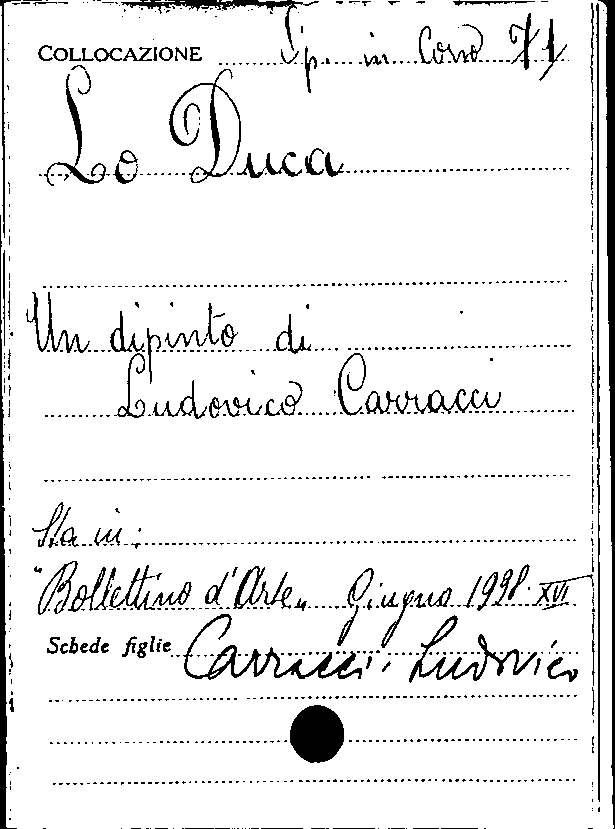 COLLOCAZIONE Sp. in Corso 71
Lo Duca
Un dipinto di
Ludovico Carracci
Sta in:
"Bollettino d'Arte„ Giugno 1938-XVI
Schede figlie Carracci. Ludovico